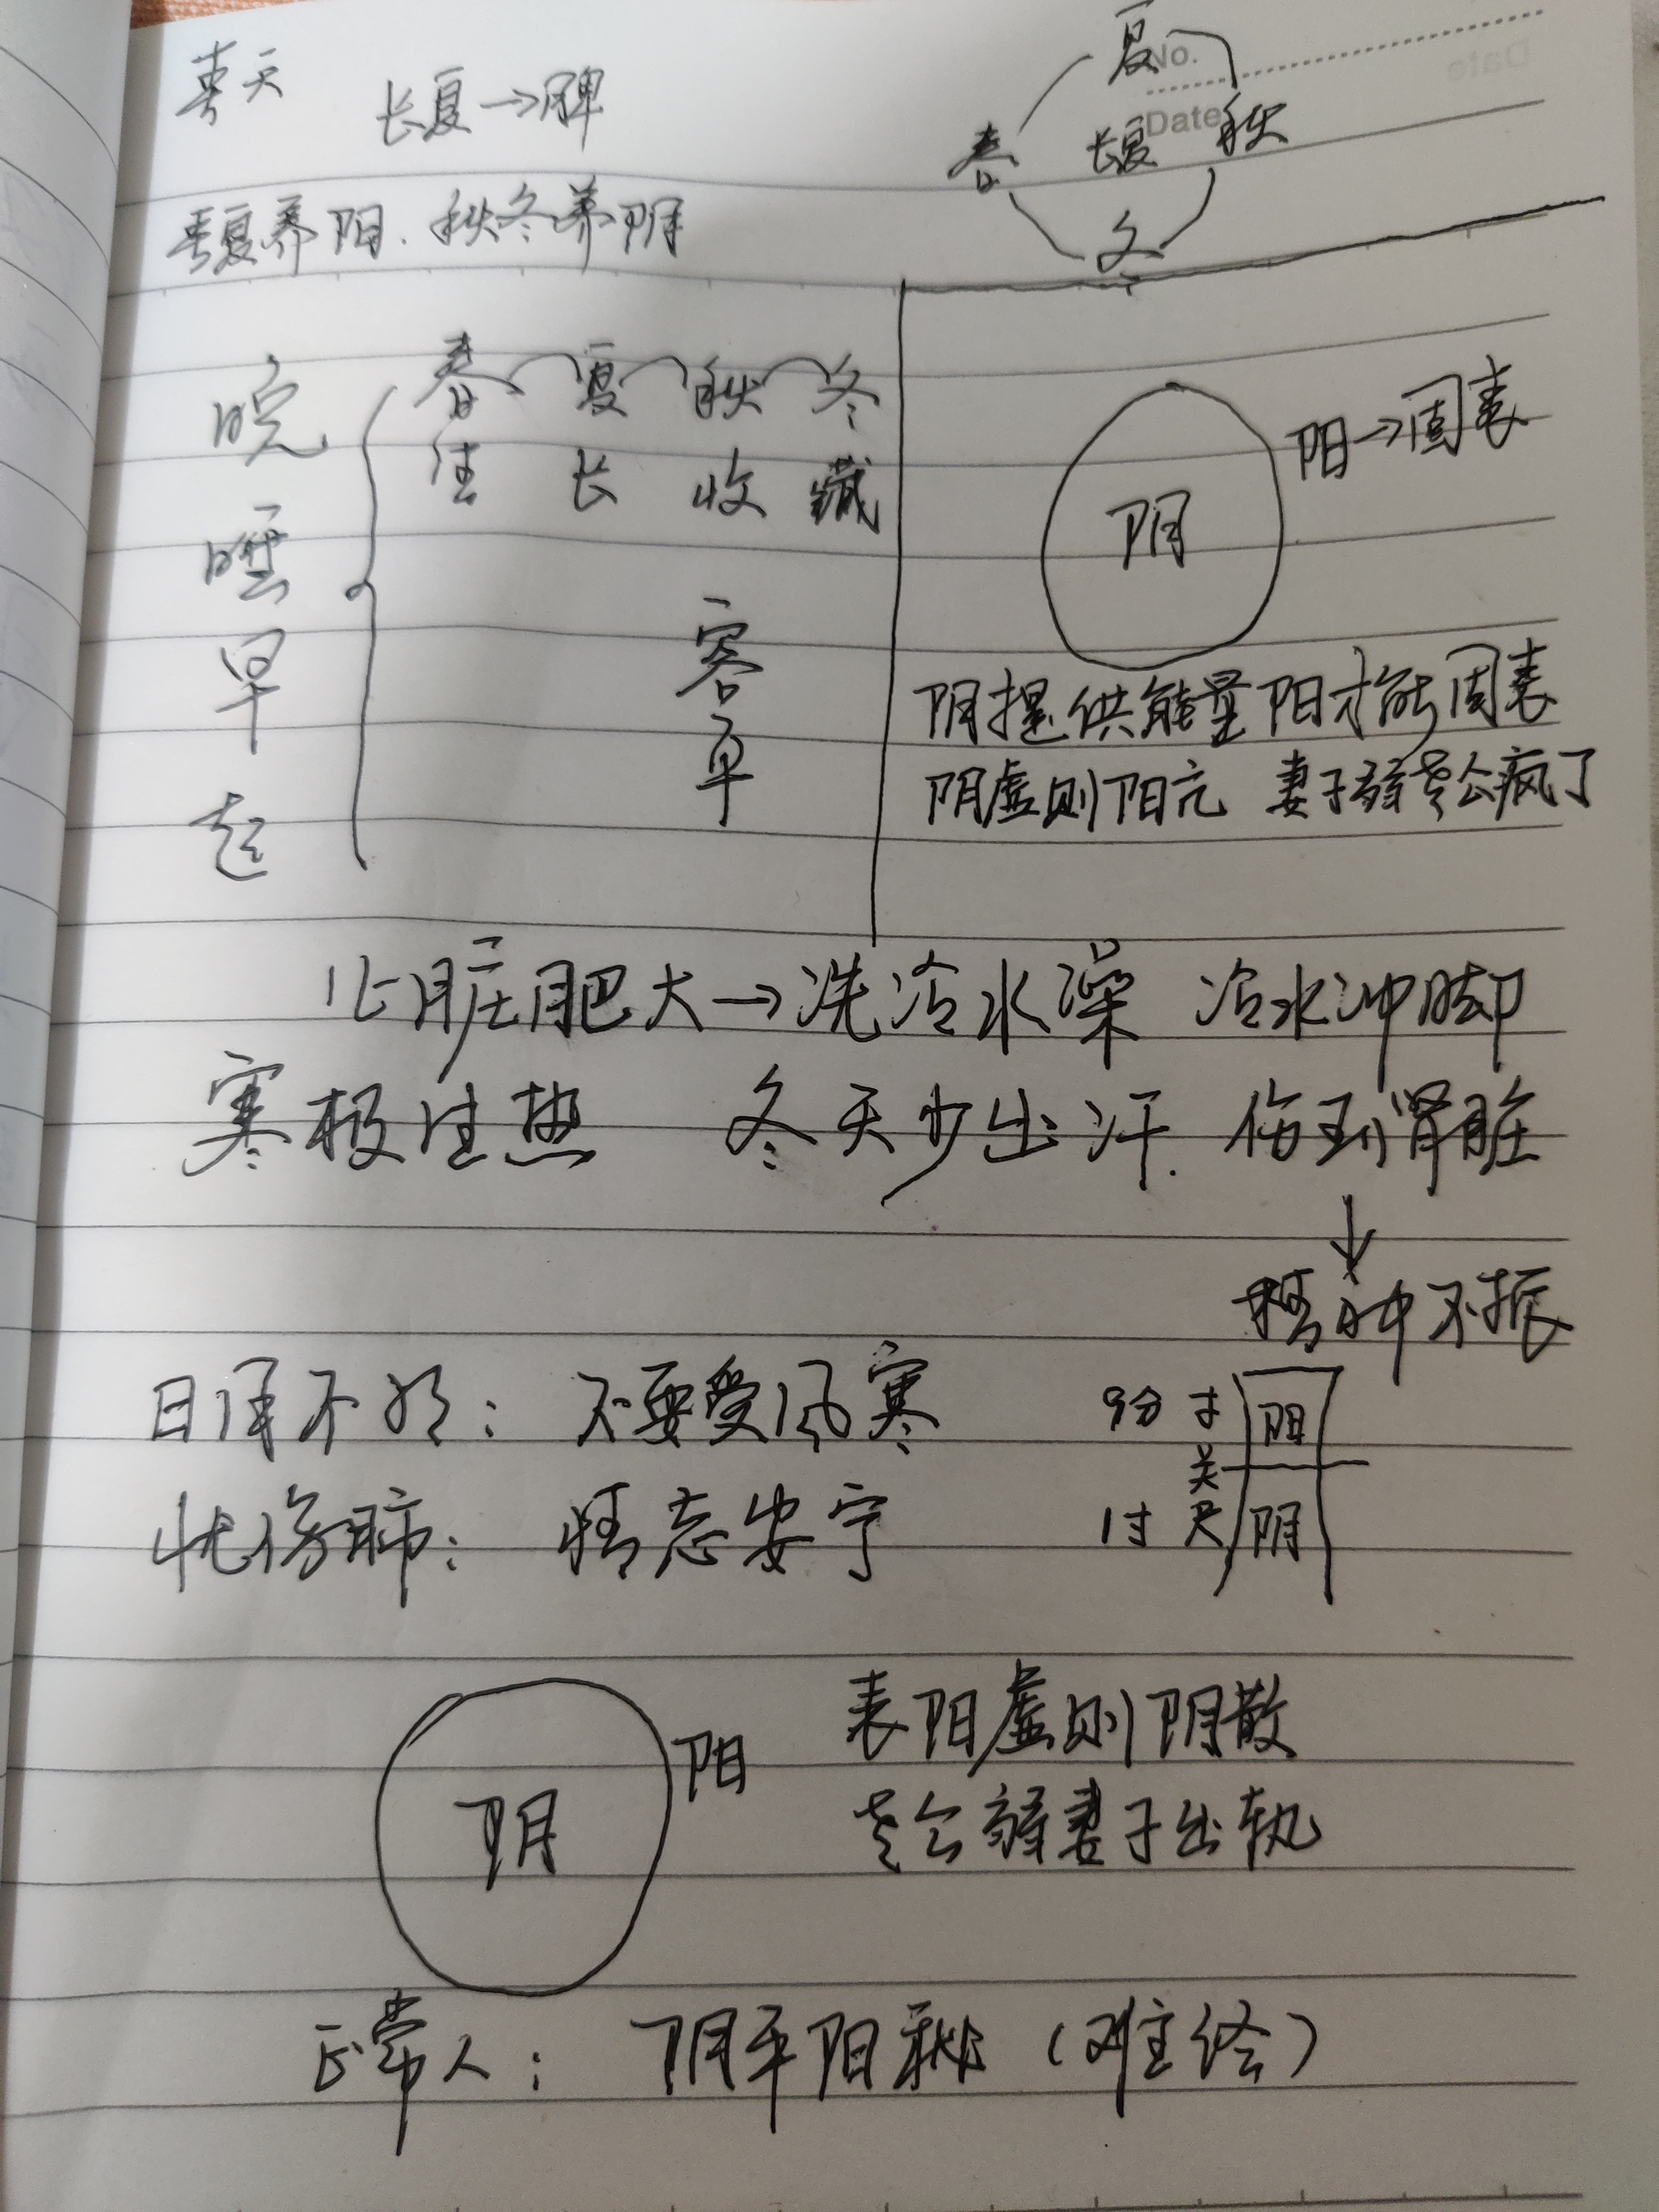 春天
长夏→脾
夏
No.
Date
春 长夏 秋
冬
春夏养阳.秋冬养阴
晚睡早起
春 夏 秋 冬
生 长 收 藏
容平
阳→固表
阴
阴提供能量阳才能固表
阴虚则阳亢 妻子弱老公疯了
心脏肥大→洗冷水澡 冷水冲脚
寒极生热 冬天少出汗. 伤到肾脏
↓
精神不振
9分 寸 阳
关
1寸 尺 阴
不要受风寒
忧伤肺: 情志安宁
阴 阳
表阳虚则阴散
老公弱妻子出轨
正常人: 阴平阳秘 (难经)